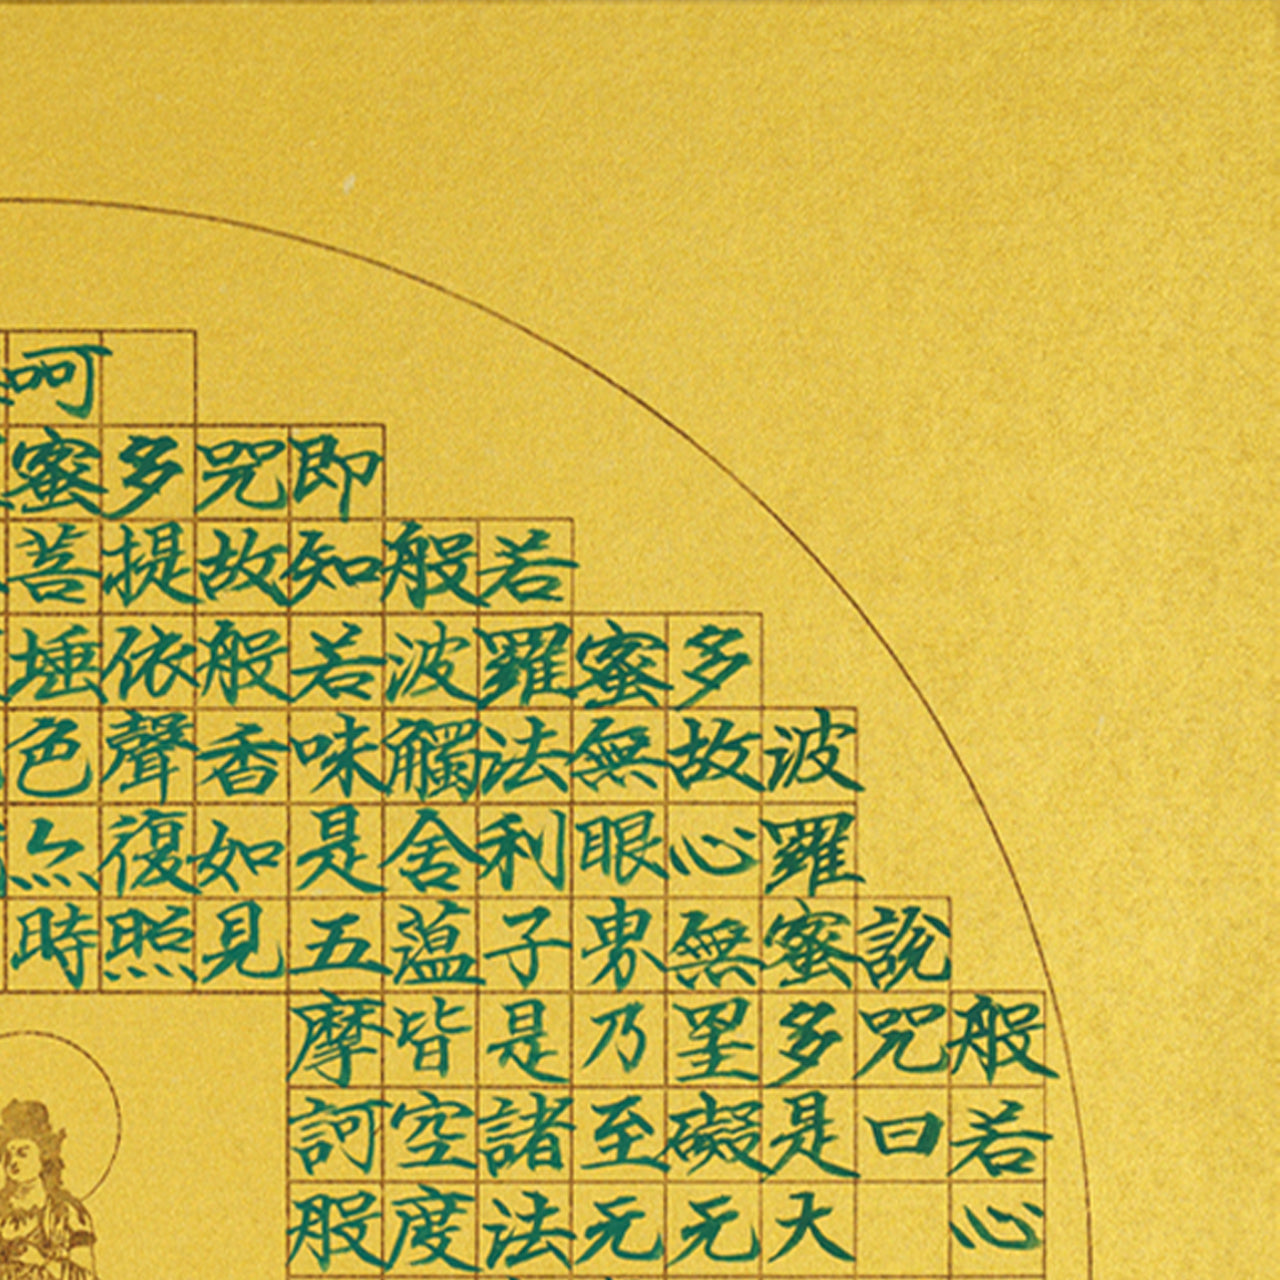 呵
蜜多咒即
菩提故知般若
埵依般若波羅蜜多
色聲香味觸法無故波
亦復如是舍利眼心羅
時照見五蘊子界無蜜說
摩皆是乃罣多咒般
訶空諸至礙是曰若
般度法无无大心